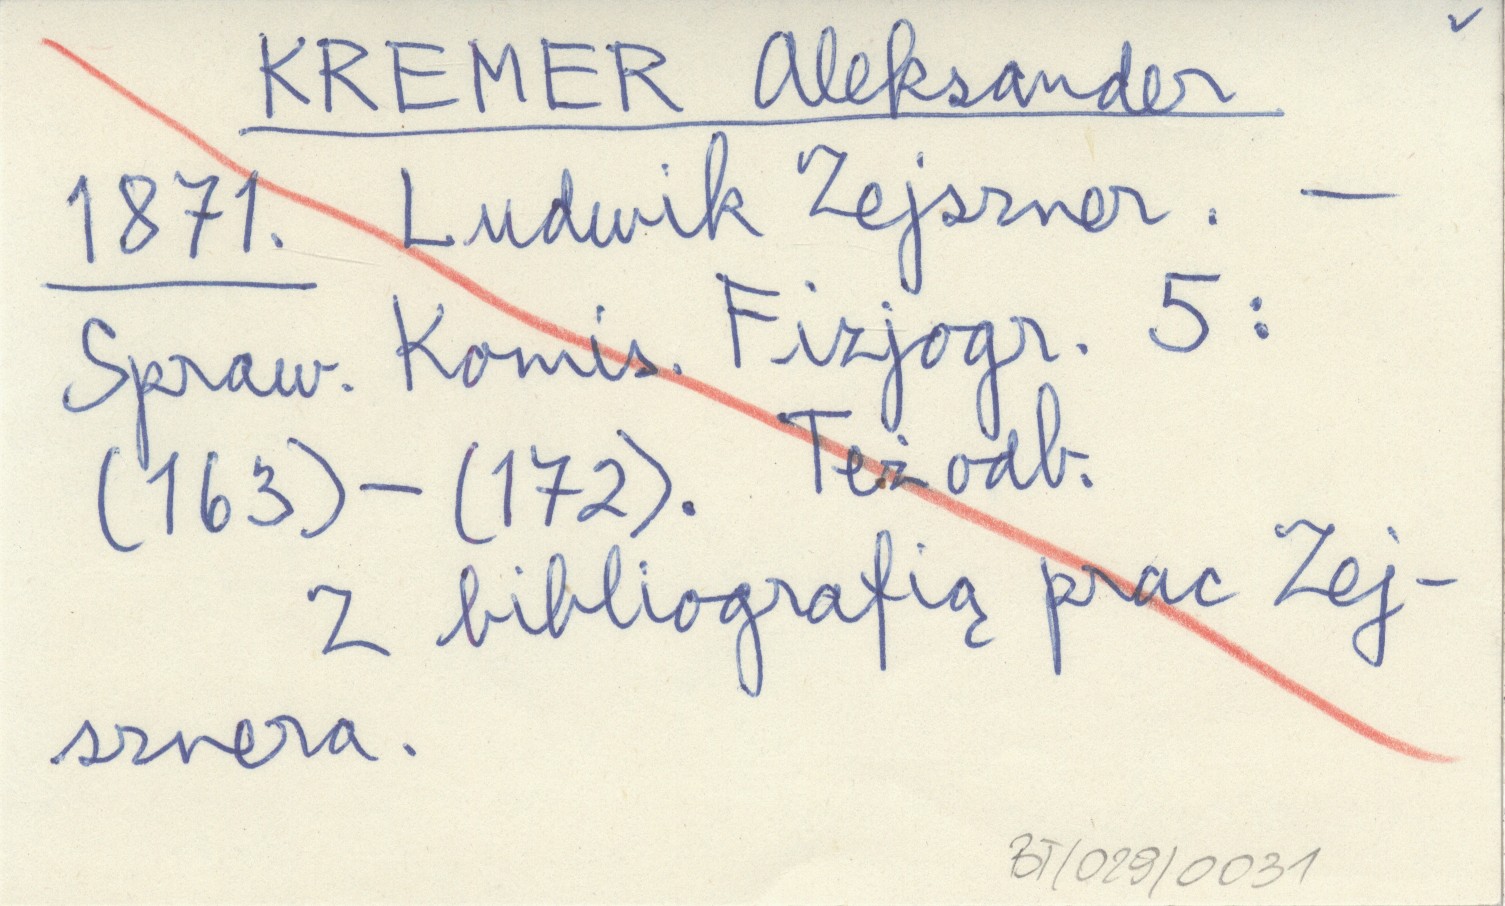 KREMER Aleksander
1871. Ludwik Zejszner. —
Spraw. Komis. Fizjogr. 5:
(163)-(172). Też odb.
Z bibliografią prac Zej-
sznera.
BT/029/0031